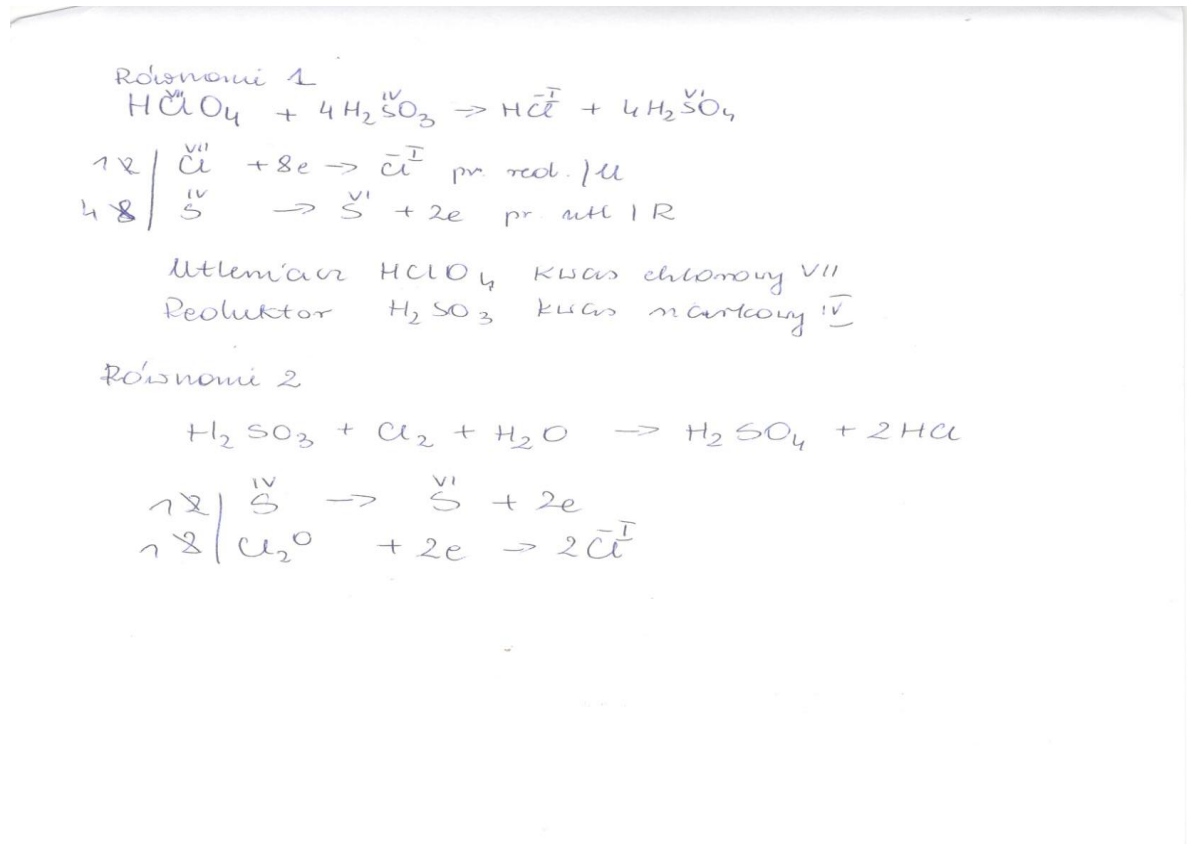 Równani 1
HCl^VII O₄ + 4H₂S^IV O₃ → HCl^-I + 4H₂S^VI O₄
1 2 | Cl^VII + 8e → Cl^-I pr. red. / U
4 8 | S^IV → S^VI + 2e pr utl | R
Utleniacz HClO₄ kwas chlorowy VII
Reduktor H₂SO₃ kwas siarkowy IV
Równani 2
H₂SO₃ + Cl₂ + H₂O → H₂SO₄ + 2HCl
1 2 | S^IV → S^VI + 2e
1 8 | Cl₂⁰ + 2e → 2Cl^-I